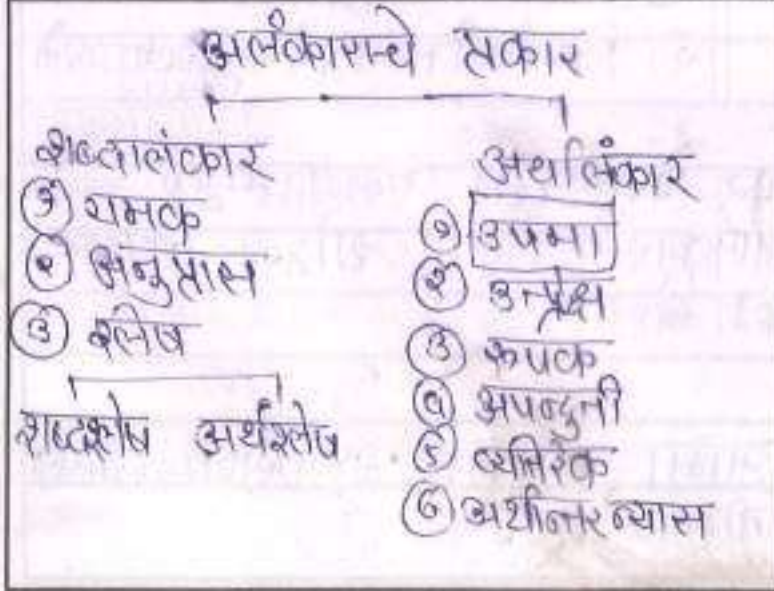 अलंकाराचे प्रकार
शब्दालंकार
① यमक
② अनुप्रास
③ श्लेष
शब्दश्लेष अर्थश्लेष
अर्थालंकार
① उपमा
② उत्प्रेक्ष
③ रूपक
④ अपन्हुती
⑤ व्यतिरेक
⑥ अर्थान्तरन्यास